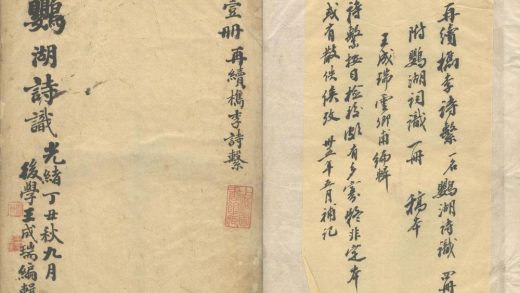 再續檇李詩繫 一名鸚湖詩識 冊
附鸚湖詞識一冊 稿本
王成瑞雲卿甫編輯
詩繫按目檢校頗有多寡終非定本
或有散佚俟攷 卅五年五月補記
壹册 再續檇李詩繫
鸚湖詩識
光緒丁丑秋九月
後學王成瑞編輯